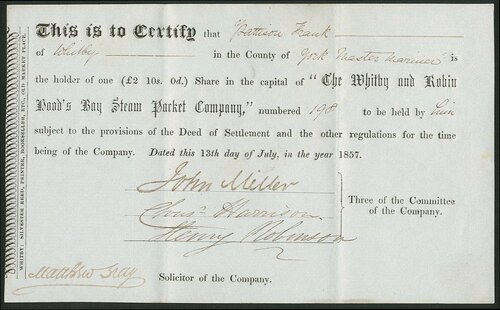 This is to Certify that Pattison Frank
of Whitby in the County of York Master Mariner is
the holder of one (£2 10s. 0d.) Share in the capital of "The Whitby and Robin
Hood's Bay Steam Packet Company," numbered 198 to be held by him
subject to the provisions of the Deed of Settlement and the other regulations for the time
being of the Company. Dated this 13th day of July, in the year 1857.
John Miller
Chrisr. Harrison
Henry Robinson
Three of the Committee
of the Company.
Matthew Gray
Solicitor of the Company.
WHITBY: SILVESTER REED, PRINTER, BOOKSELLER, ETC., OLD MARKET PLACE.